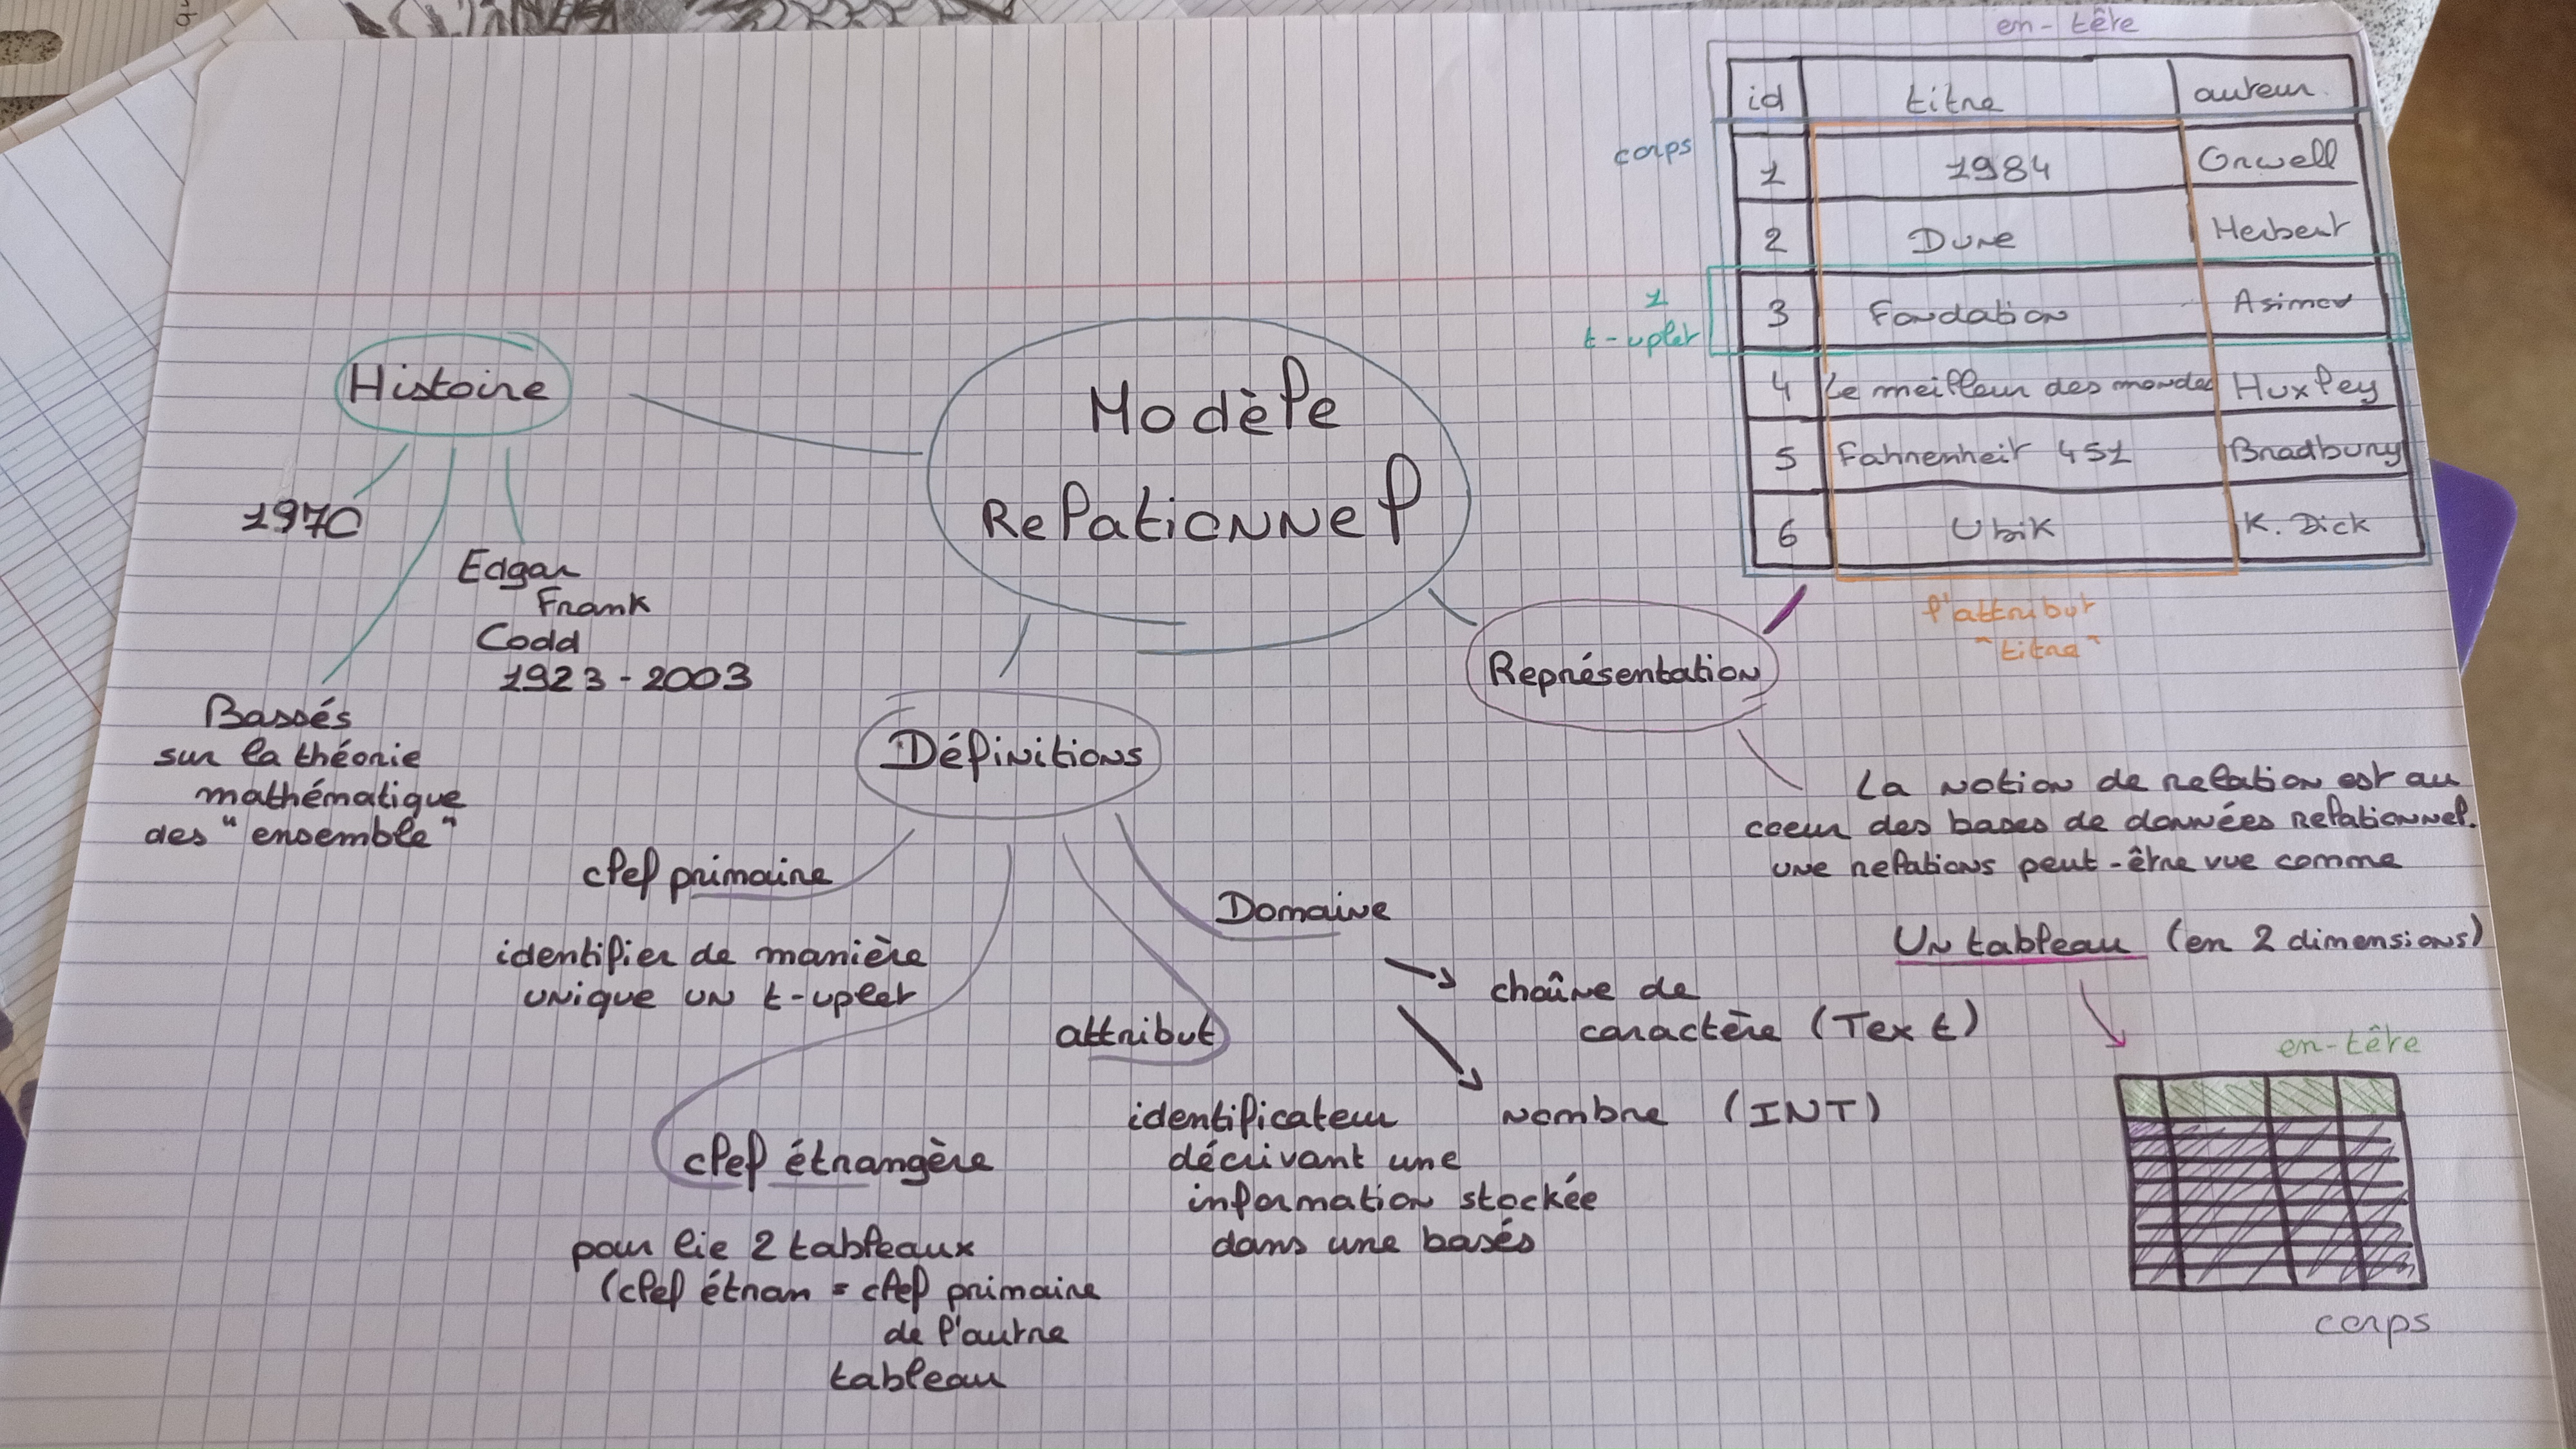 en-tête
id titre auteur
corps
1 1984 Orwell
2 Dune Herbert
1
t-uplet
3 Fondation Asimov
4 Le meilleur des mondes Huxley
5 Fahrenheit 451 Bradbury
6 Ubik K. Dick
l'attribut
"titre"
Modèle
Relationnel
Histoire
1970
Edgar
Frank
Codd
1923 - 2003
Bassés
sur la théorie
mathématique
des "ensemble"
Définitions
clef primaire
identifier de manière
unique un t-uplet
clef étrangère
pour lie 2 tableaux
(clef étran = clef primaire
de l'autre
tableau
attribut
identificateur
décrivant une
information stockée
dans une basés
Domaine
chaîne de
caractère (Text)
nombre (INT)
Représentation
La notion de relation est au
coeur des bases de données relationnel.
une relations peut-être vue comme
Un tableau (en 2 dimensions)
en-tête
corps